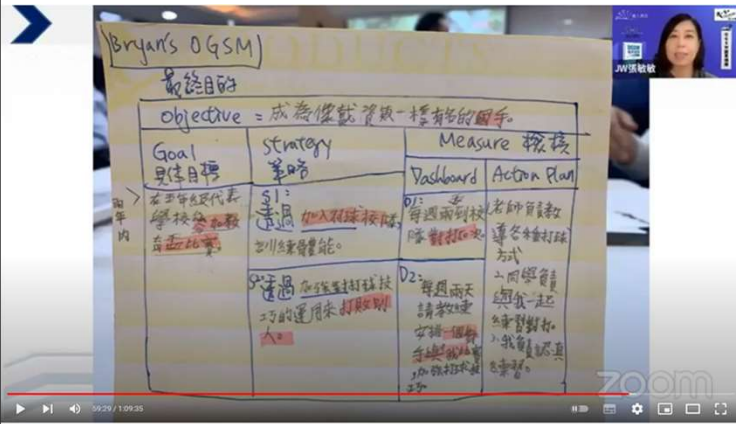 Bryan's OGSM
JW張敏敏
最終目的
Objective = 成為像戴資穎一樣有名的國手。
Goal
具體目標
Strategy
策略
Measure 檢核
Dashboard
Action Plan
兩年內
在五年級代表
學校
盃比賽。
S1:
透過加入羽球校隊
訓練體能。
S2:透過加強對打球技
巧的運用來打敗別
人。
D1:
每週兩到校
隊對打
D2:
每週兩天
請教練
安排一個對
手與我比賽
1.老師負責教
導各種打球
方式
2.同學負責
與我一起
練習對打。
3.我負責認真
練習。
zoom
59:29 / 1:09:35